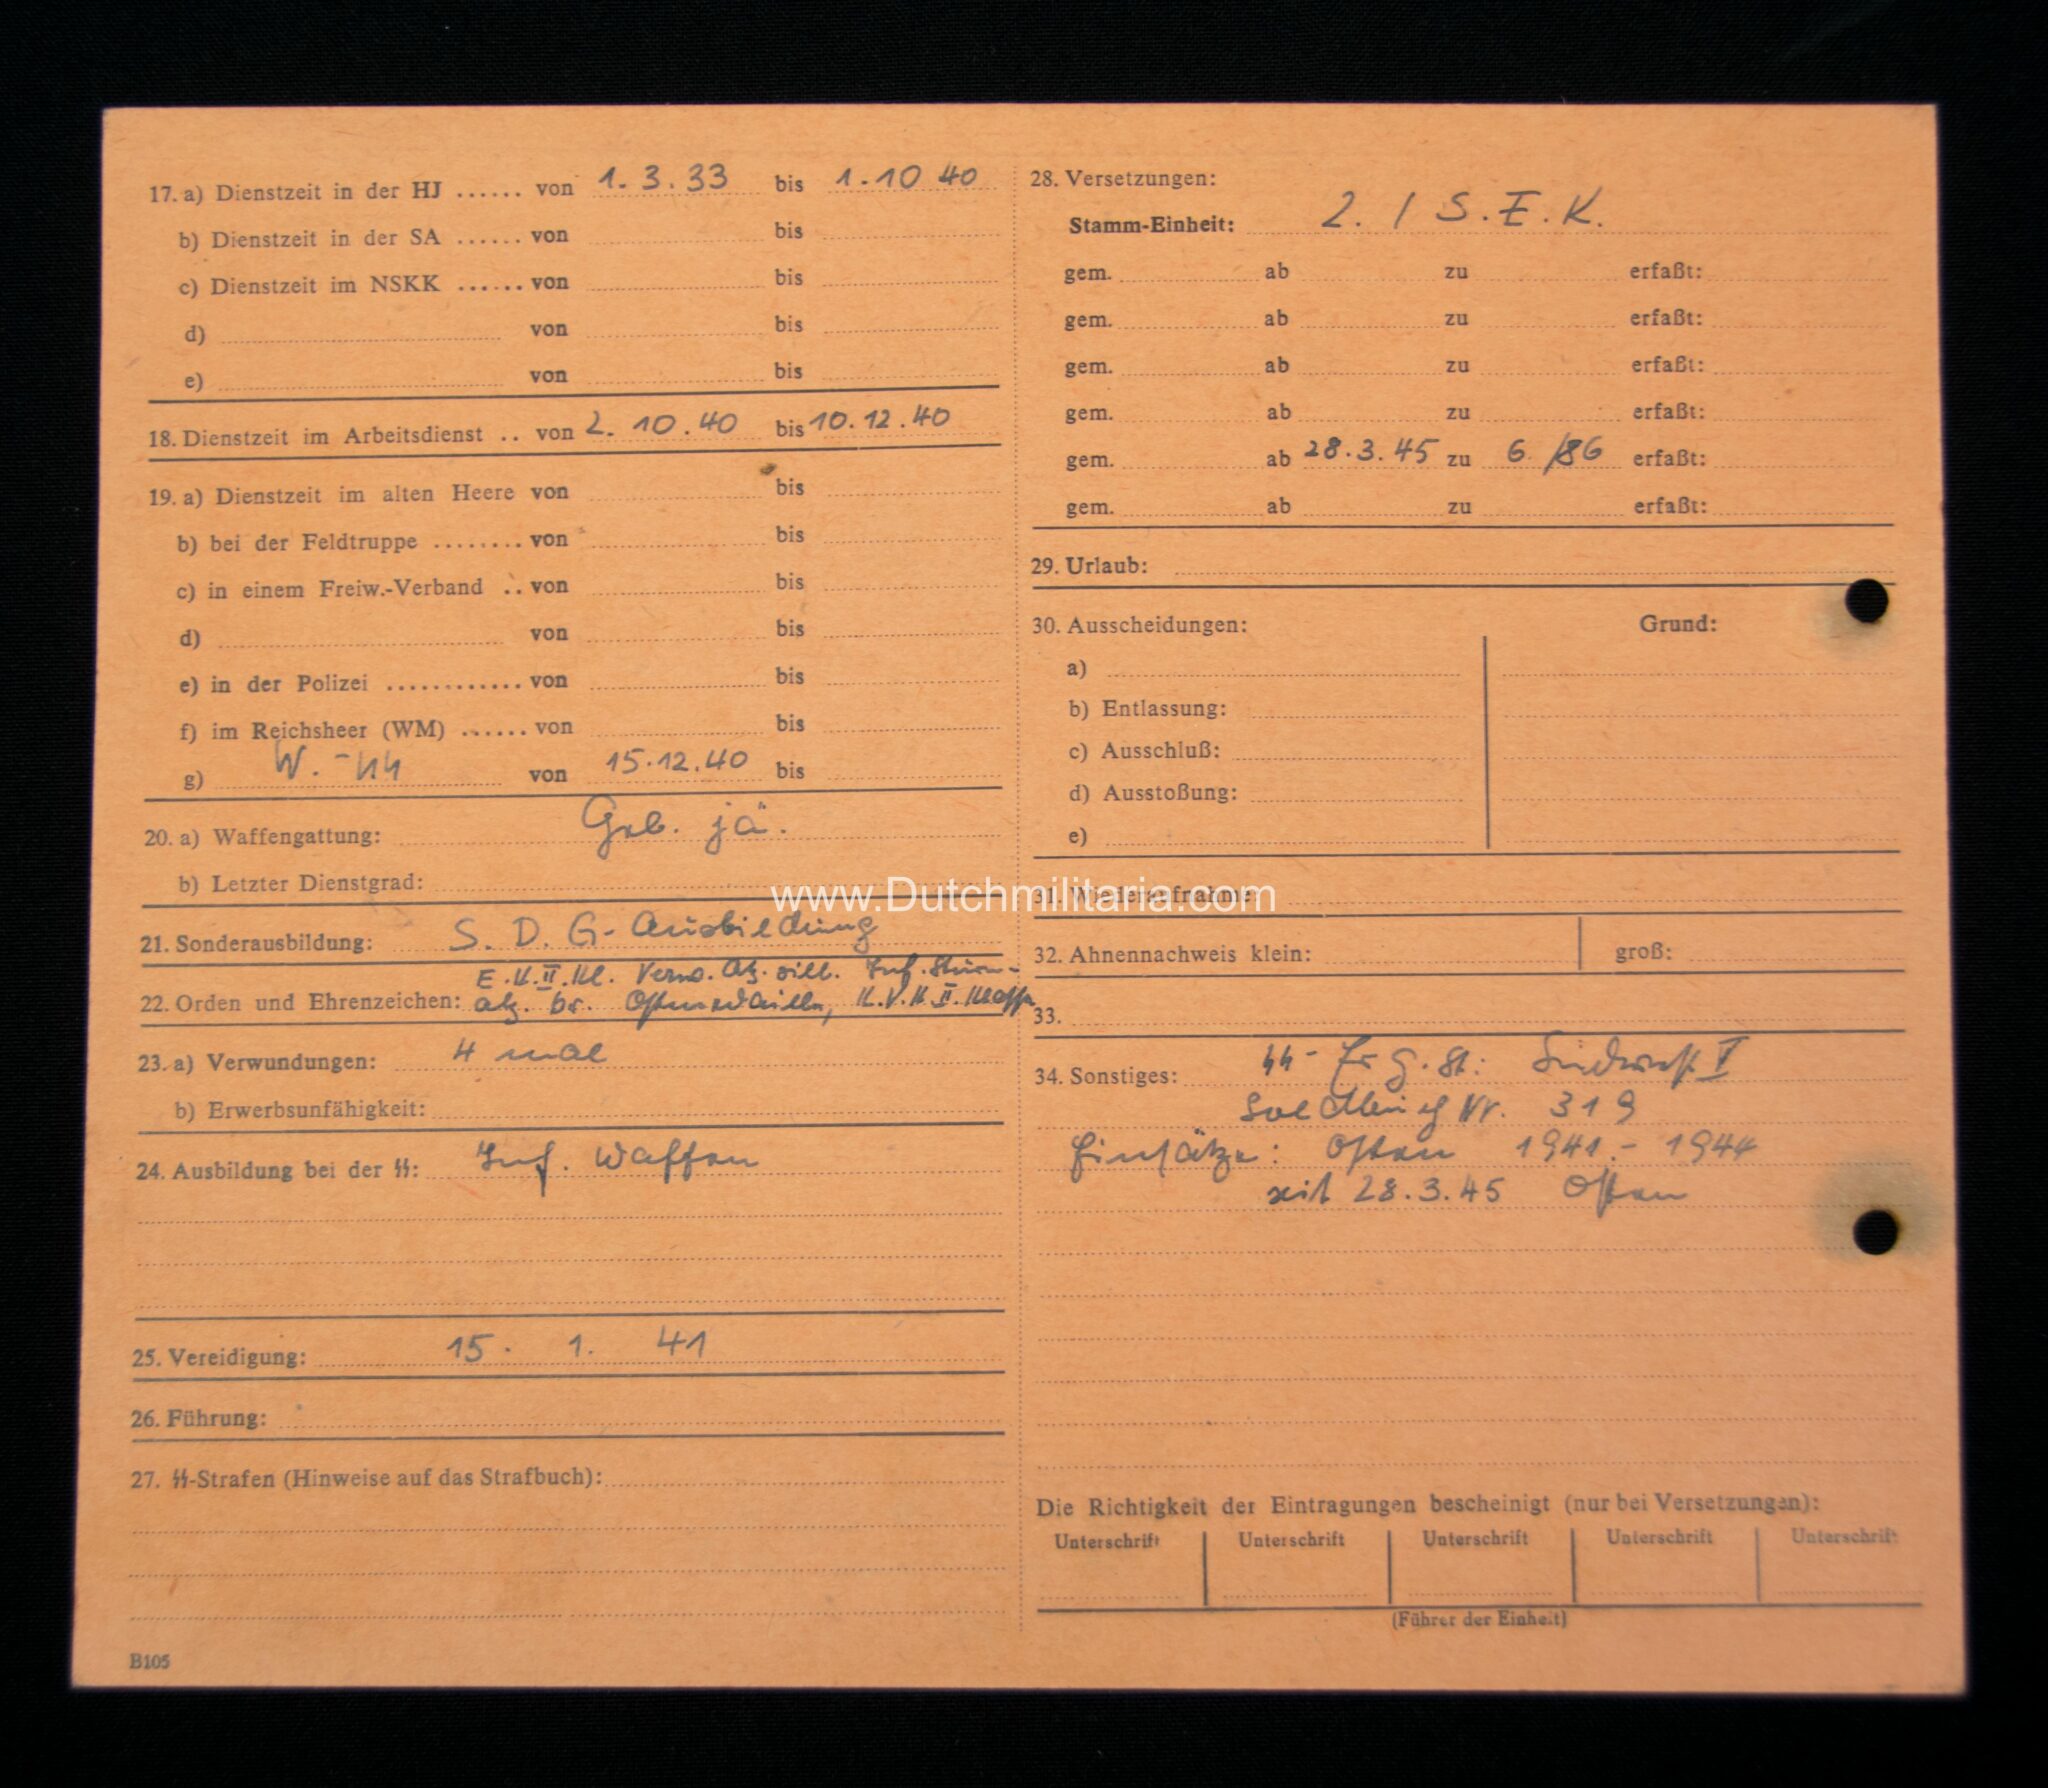 17. a) Dienstzeit in der HJ ...... von 1.3.33 bis 1.10 40
b) Dienstzeit in der SA ...... von bis
c) Dienstzeit im NSKK ...... von bis
d) von bis
e) von bis
18. Dienstzeit im Arbeitsdienst .. von 2.10.40 bis 10.12.40
19. a) Dienstzeit im alten Heere von bis
b) bei der Feldtruppe ........ von bis
c) in einem Freiw.-Verband .. von bis
d) von bis
e) in der Polizei ............ von bis
f) im Reichsheer (WM) ...... von bis
g) W.-ᛋᛋ von 15.12.40 bis
20. a) Waffengattung: Geb. jä.
b) Letzter Dienstgrad:
21. Sonderausbildung: S. D. G- Ausbildung
E.K.II.Kl. Verw. Abz. silb. Inf. Sturm-
22. Orden und Ehrenzeichen: abz. br. Ostmedaille, K.V.K.II.Klasse
23. a) Verwundungen: 4 mal
b) Erwerbsunfähigkeit:
24. Ausbildung bei der ᛋᛋ: Inf. Waffen
25. Vereidigung: 15. 1. 41
26. Führung:
27. ᛋᛋ-Strafen (Hinweise auf das Strafbuch):
B105
28. Versetzungen:
Stamm-Einheit: 2. / S.E.K.
gem. ab zu erfaßt:
gem. ab zu erfaßt:
gem. ab zu erfaßt:
gem. ab zu erfaßt:
gem. ab 28.3.45 zu 6./86 erfaßt:
gem. ab zu erfaßt:
29. Urlaub:
30. Ausscheidungen: Grund:
a)
b) Entlassung:
c) Ausschluß:
d) Ausstoßung:
e)
31. Wiederaufnahme:
32. Ahnennachweis klein: groß:
33.
34. Sonstiges: ᛋᛋ-Erg. St: Südwest V
Soldbuch Nr. 319
Einsätze: Osten 1941.- 1944
seit 28.3.45 Osten
Die Richtigkeit der Eintragungen bescheinigt (nur bei Versetzungen):
Unterschrift Unterschrift Unterschrift Unterschrift Unterschrift
(Führer der Einheit)
www.Dutchmilitaria.com